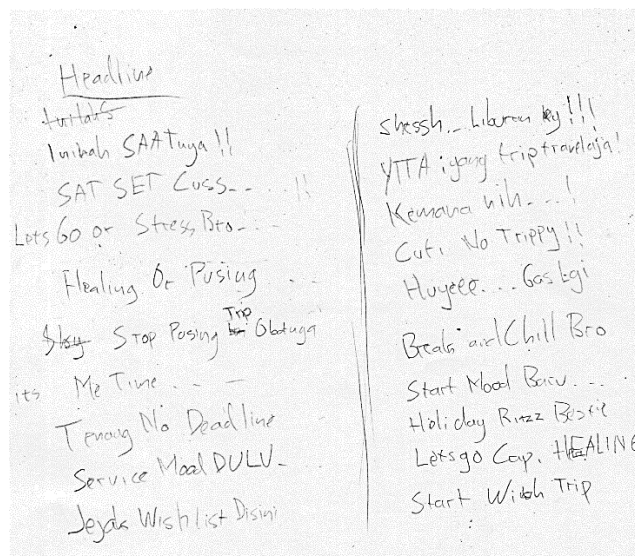 Headline
Inikah SAATnya !!
SAT SET Cuss-- . . . !!
Lets Go or Stress Bro-- . .
Healing Or Pusing . . .
Stop Pusing Trip Obatnya
its Me Time . . --
Tenang No Deadline
Service Mood DULU-
Jejak Wishlist Disini
shessh... Liburan !!!
YTTA iyang trip travelaja!
Kemana nih....!
Cuti No Trippy !!
Huyeee... Gas Lgi
Break and Chill Bro
Start Mood Baru...
Holiday Rizz Bestie
Letsgo Cap. HEALING
Start With Trip